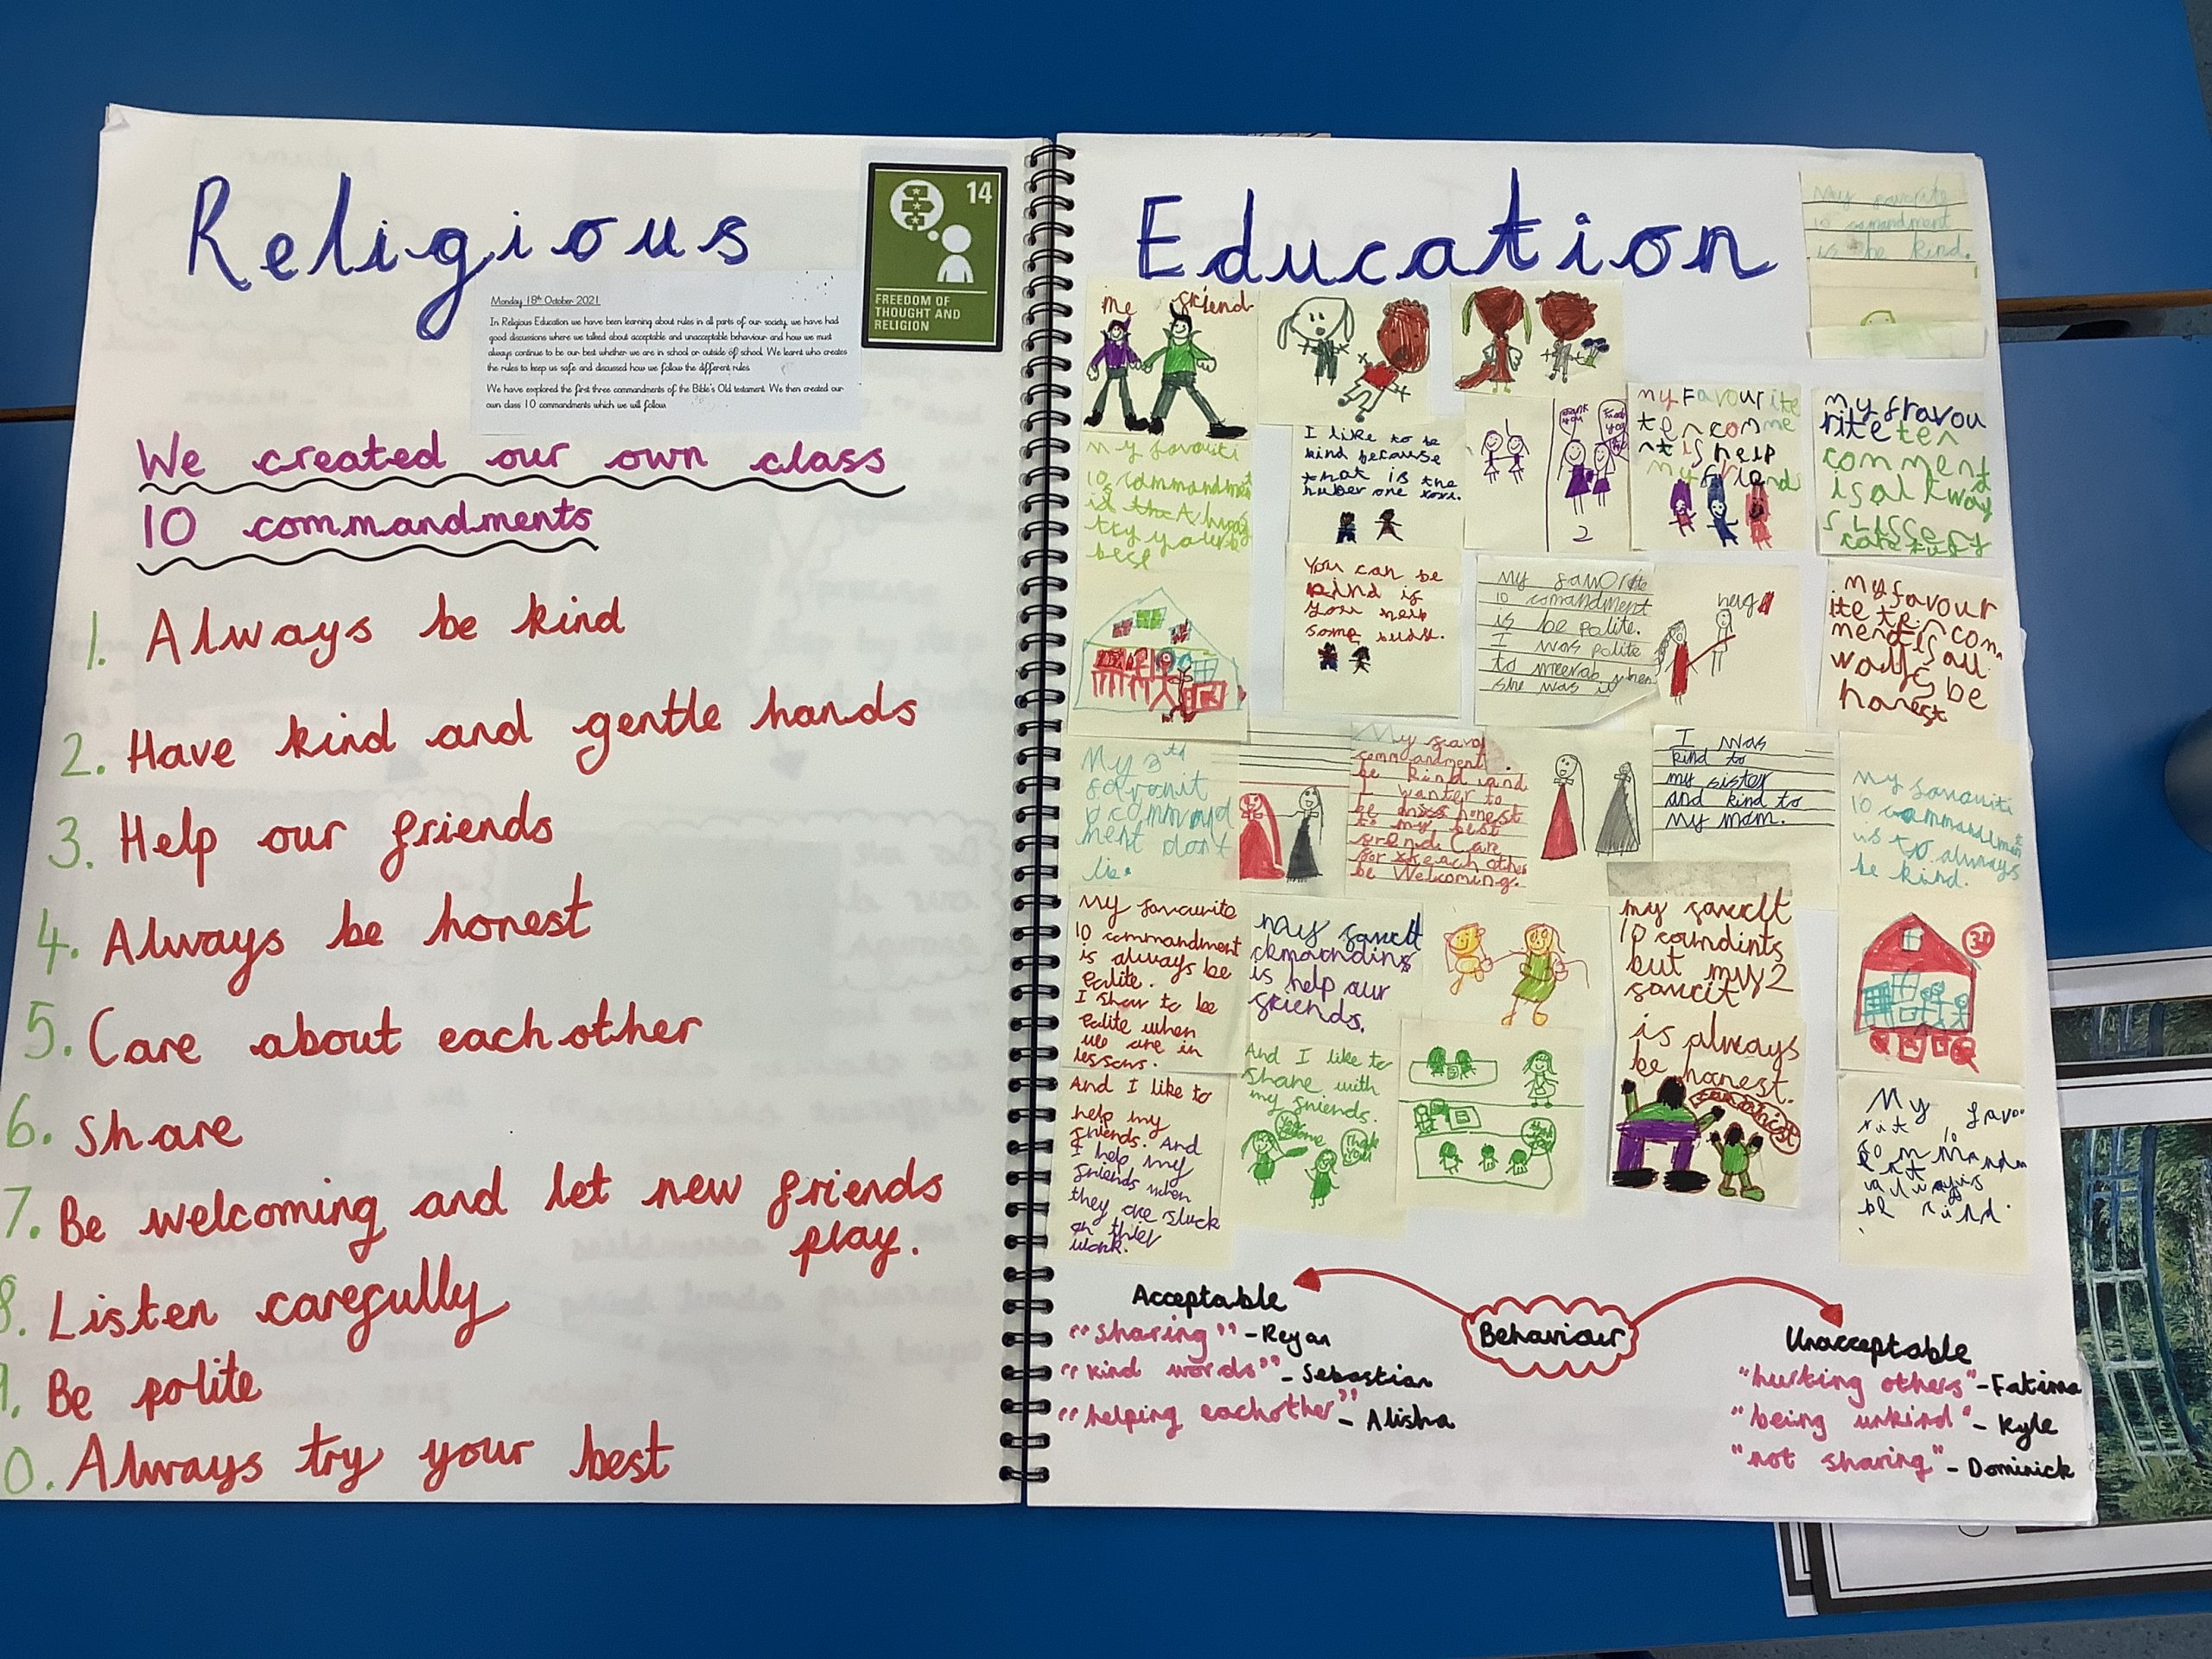 Religious
14
FREEDOM OF
THOUGHT AND
RELIGION
Monday 18th October 2021
In Religious Education we have been learning about rules in all parts of our society, we have had
good discussions where we talked about acceptable and unacceptable behaviour and how we must
always continue to be our best whether we are in school or outside of school. We learnt who creates
the rules to keep us safe and discussed how we follow the different rules.
We have explored the first three commandments of the Bible's Old testament. We then created our
own class 10 commandments which we will follow.
We created our own class
10 commandments
1. Always be kind
2. Have kind and gentle hands
3. Help our friends
4. Always be honest
5. Care about each other
6. Share
7. Be welcoming and let new friends
play.
8. Listen carefully
9. Be polite
0. Always try your best
Education
My favorite
10 comandment
is be kind.
me friend
my favouriti
10 commandment
is the Always
try your
best
I like to be
kind because
that is the
nuber one
thank
you
2
my Favourite
ten comme
nt is help
my friends
my fravou
rite ten
comment
is alkway
You can be
kind is
you help
some
my favorite
10 comandment
is be polite.
I was polite
to meerab when
she was it
my favour
ite ten com
ment is all
ways be
honest
My 3th
favouirt
10 command
ment dont
lie.
My favo
commandment
be kind and
I wanter to
be honest
to my best
frend. Care
for each other
be Welcoming.
I was
kind to
my sister
and kind to
my mom.
my favouriti
10 commandment
is to always
be kind.
My favourite
10 commandment
is always be
polite.
I show to be
polite when
we are in
lessons.
And I like to
help my
friends. And
I help my
friends when
they are stuck
on thier
work.
My favurt
ckmaondins
is help our
friends.
And I like to
share with
my friends.
Your
welcome
Thank
you
my favucit
10 coundints
but myy 2
favucit
is always
be honest.
My favo
rit 10
commandm
ent
always
be kind.
Behaviour
Acceptable
"sharing" - Reyan
"kind words" - Sebastian
"helping eachother" - Alisha
Unacceptable
"hurting others" - Fatima
"being unkind" - Kyle
"not sharing" - Dominick